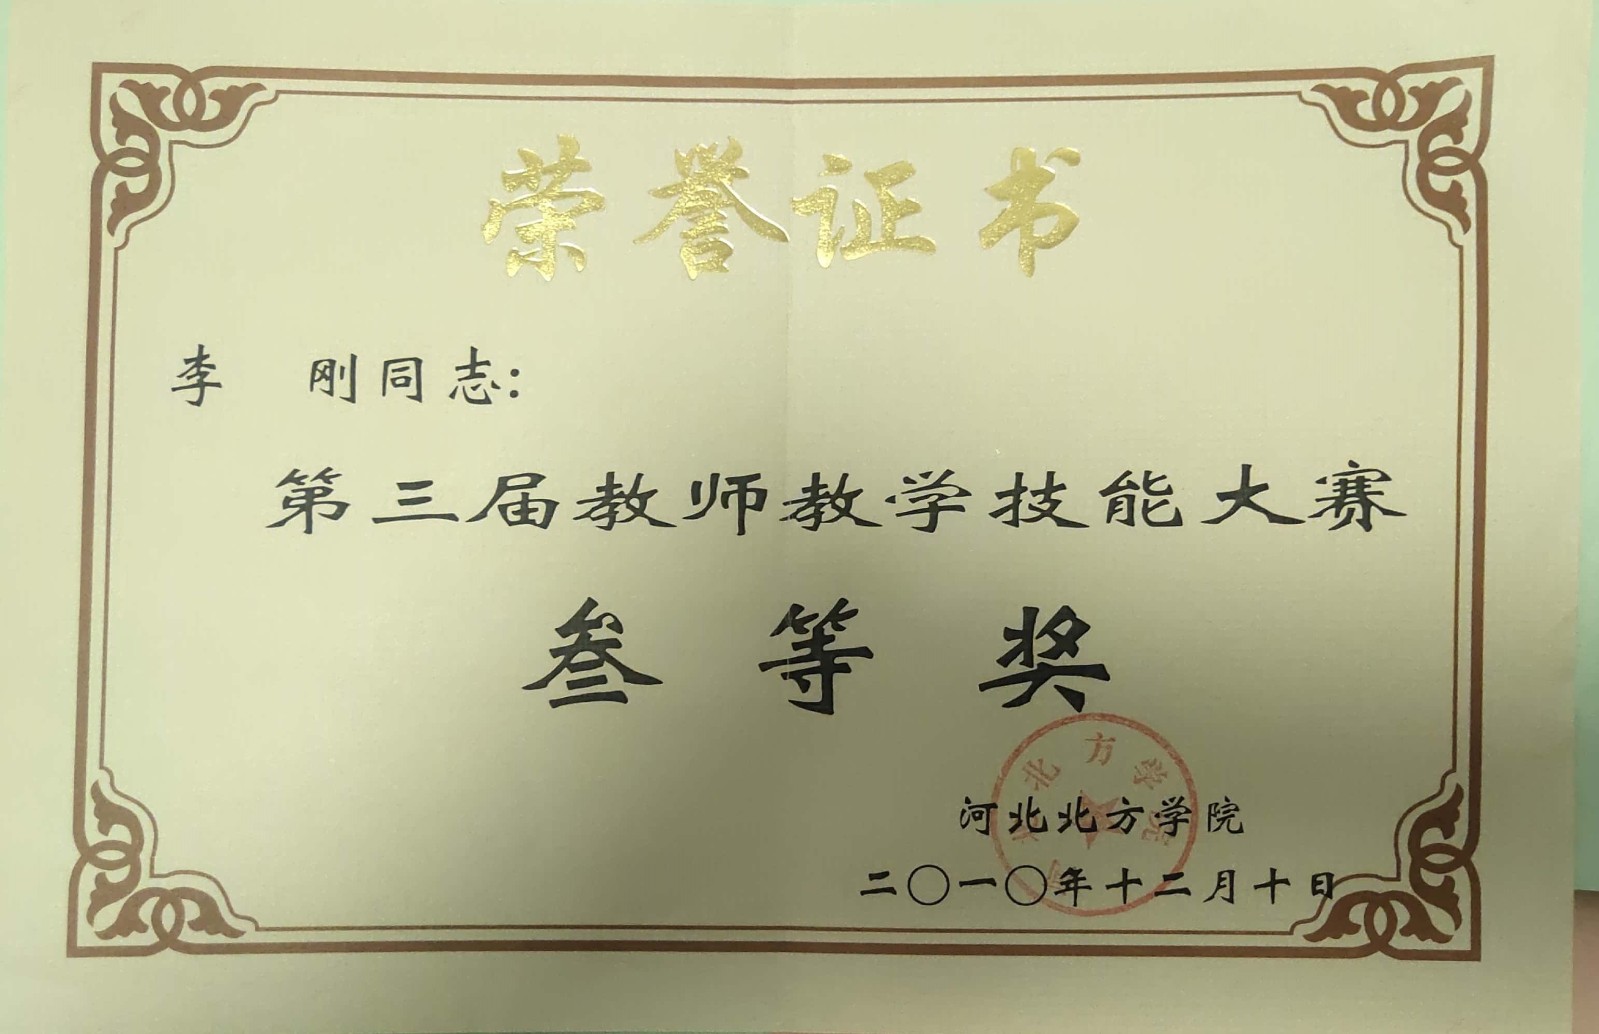 荣誉证书
李 刚同志：
第三届教师教学技能大赛
叁等奖
河北北方学院
二〇一〇年十二月十日
河北北方学院